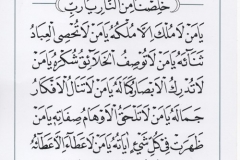 خَلِّصْنَا مِنَ النَّارِ يَا رَبِّ
يَا مَنْ لَا مُلْكَ اِلَّا مُلْكُهُ يَا مَنْ لَا تُحْصِى الْعِبَادُ
ثَنَائَهُ يَا مَنْ لَا تَصِفُ الْخَلَائِقُ شُكْرَهُ يَا مَنْ
لَا تُدْرِكُ الْاَبْصَارُ كَمَالَهُ يَا مَنْ لَا تَنَالُ الْاَفْكَارُ
جَمَالَهُ يَا مَنْ لَا تَلْحَقُ الْاَوْهَامُ صِفَاتِهِ يَا مَنْ
ظَهَرَتْ فِى كُلِّ شَيْءٍ اٰيَاتُهُ يَا مَنْ لَا عَطَاءَ اِلَّا عَطَاؤُهُ